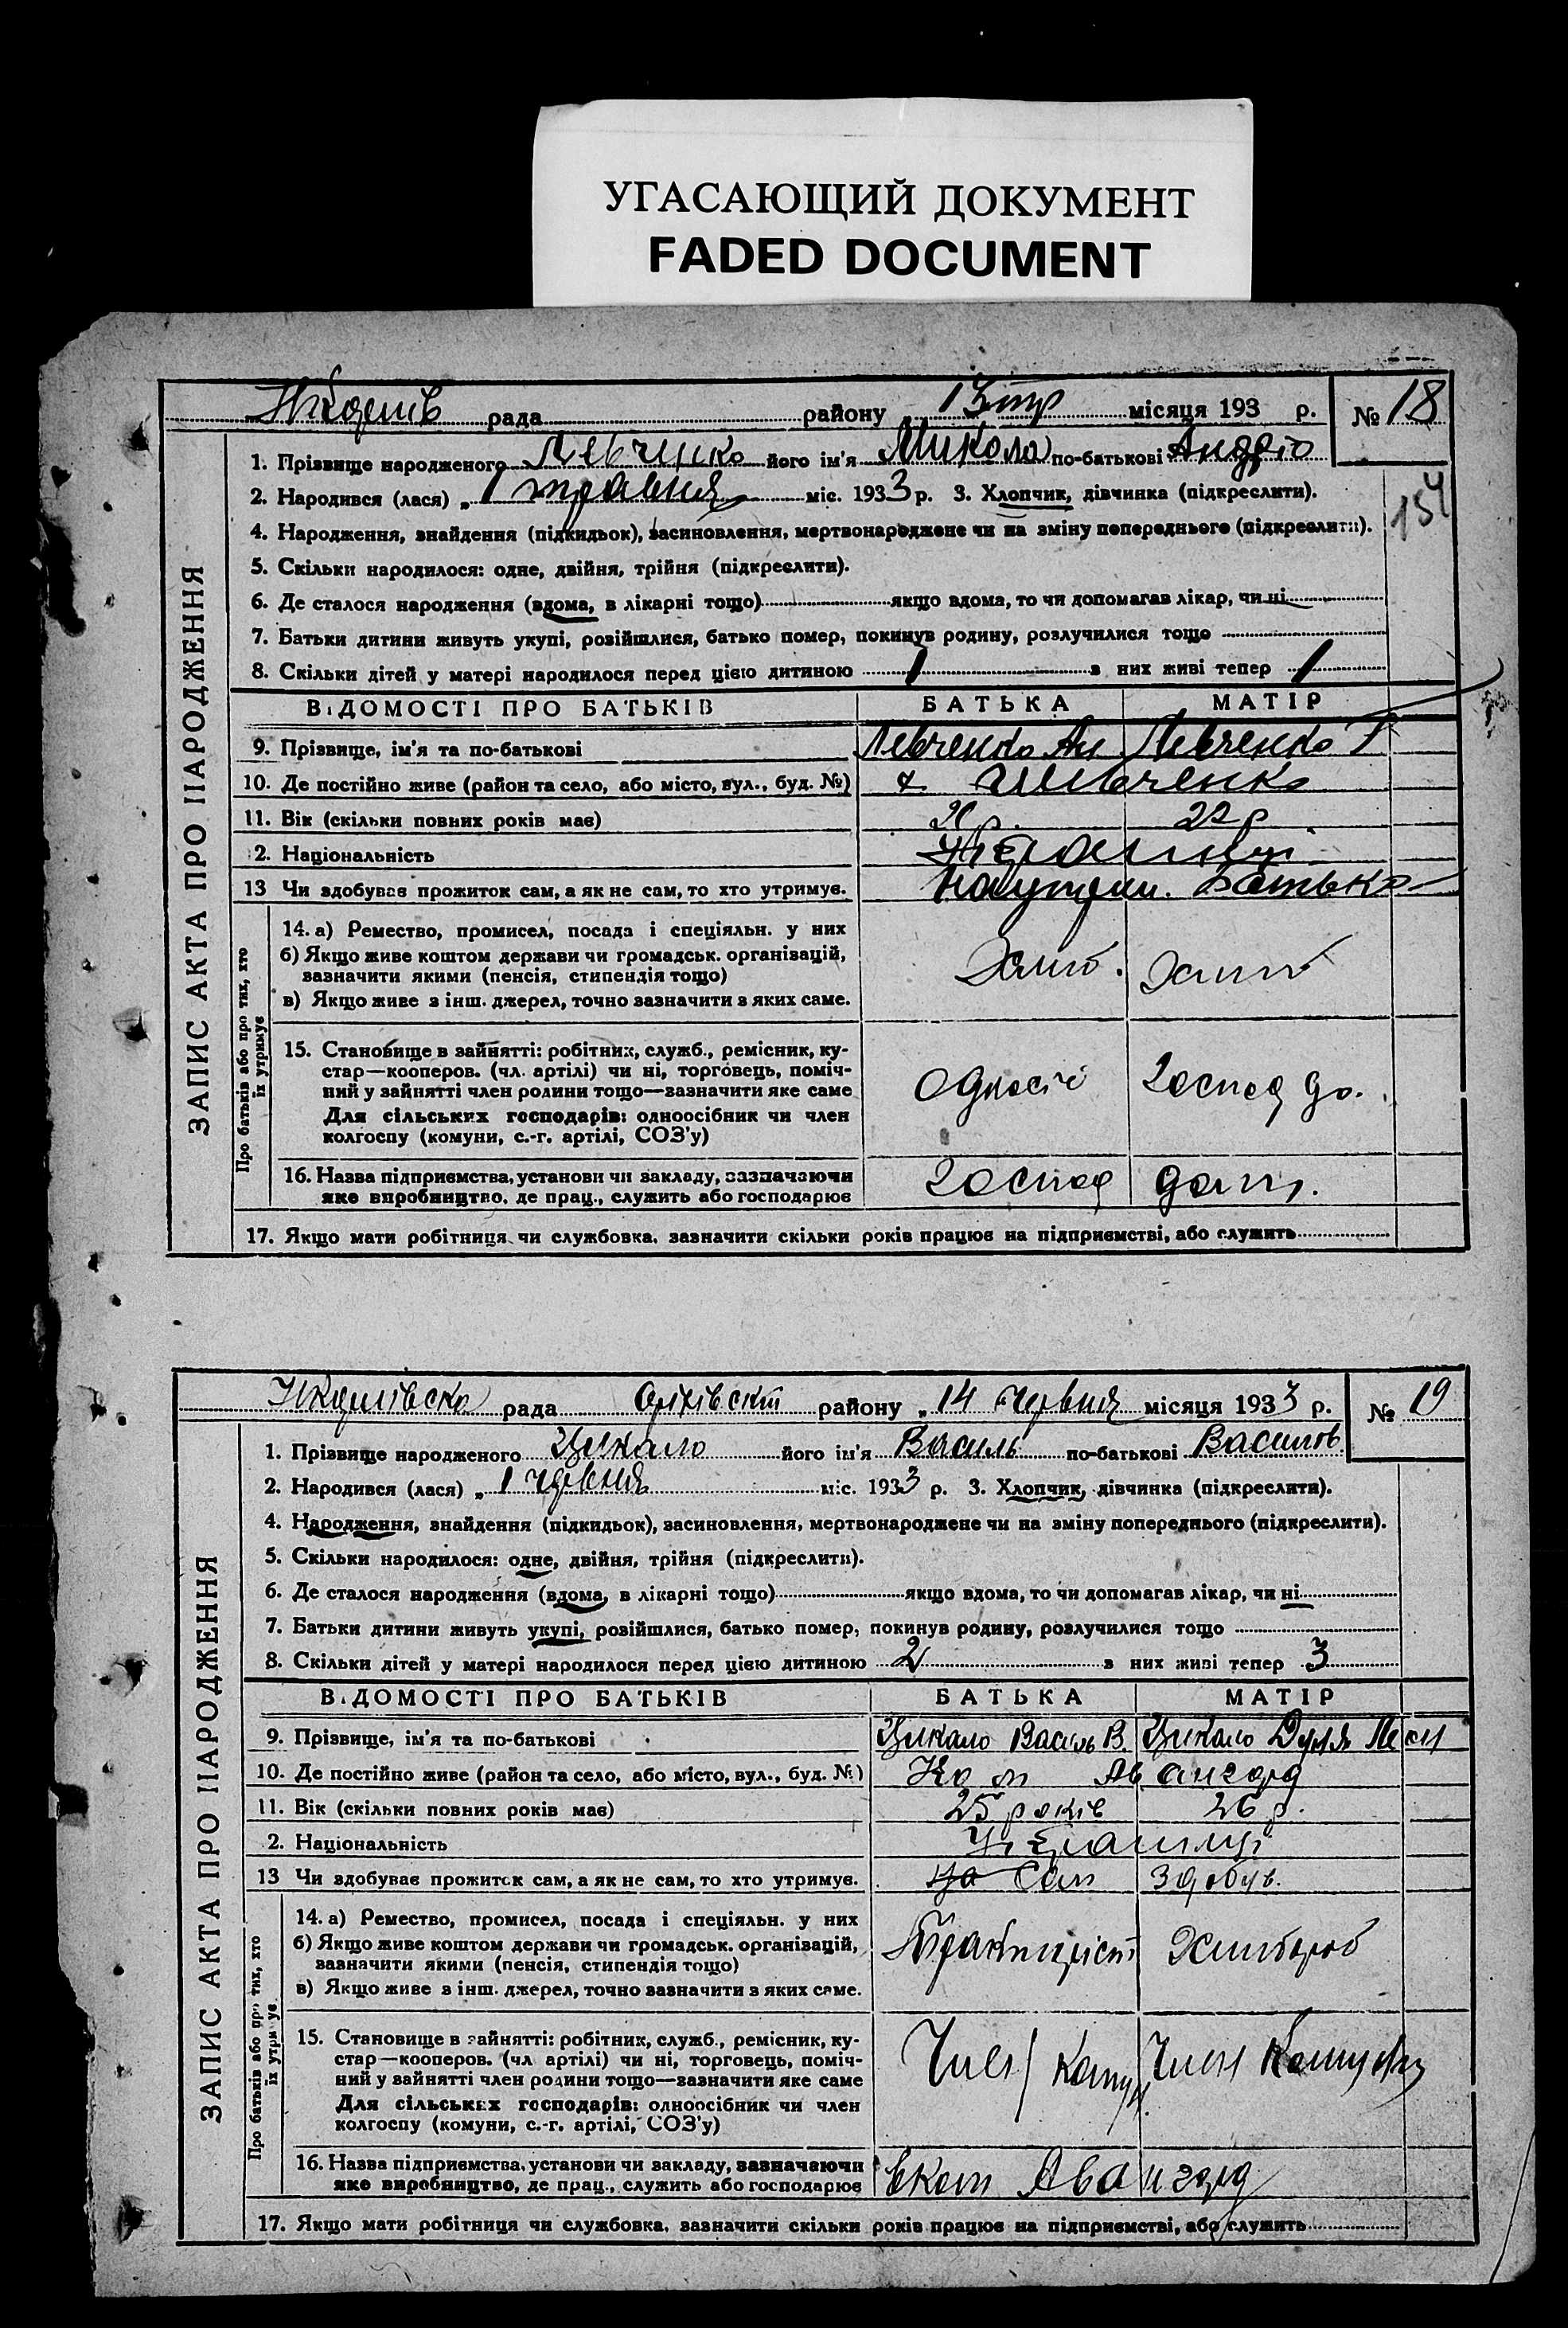 УГАСАЮЩИЙ ДОКУМЕНТ
FADED DOCUMENT
рада району „ 13 тр місяця 193 р. № 18
1. Прізвище народженого Левченко його ім'я Микола по-батькові Андрію
154
2. Народився (лася) „ 1 травня міс. 1933 р. 3. Хлопчик, дівчинка (підкреслити).
4. Народження, знайдення (підкидьок), засиновлення, мертвонароджене чи на зміну попереднього (підкреслити).
5. Скільки народилося: одне, двійня, трійня (підкреслити).
6. Де сталося народження (вдома, в лікарні тощо) якщо вдома, то чи допомагав лікар, чи ні
7. Батьки дитини живуть укупі, розійшлися, батько помер, покинув родину, розлучилися тощо
8. Скільки дітей у матері народилося перед цією дитиною 1 з них живі тепер 1
ЗАПИС АКТА ПРО НАРОДЖЕННЯ
ВІДОМОСТІ ПРО БАТЬКІВ БАТЬКА МАТІР
9. Прізвище, ім'я та по-батькові Левченко Ан Левченко
10. Де постійно живе (район та село, або місто, вул., буд. №) х. Шевченко
11. Вік (скільки повних років має) 22 р
2. Національність Українці
13 Чи здобуває прожиток сам, а як не сам, то хто утримує. на утрим. батька
Про батьків або про тих, хто їх утримує
14. а) Ремество, промисел, посада і спеціяльн. у них
б) Якщо живе коштом держави чи громадськ. організацій,
зазначити якими (пенсія, стипендія тощо)
в) Якщо живе з інш. джерел, точно зазначити з яких саме.
Хліб. Хліб
15. Становище в зайнятті: робітник, служб., ремісник, ку-
стар—кооперов. (чл. артілі) чи ні, торговець, поміч-
ний у зайнятті член родини тощо—зазначити яке саме
Для сільських господарів: одноосібник чи член
колгоспу (комуни, с.-г. артілі, СОЗ'у)
Одноосі Господ до.
16. Назва підприємства, установи чи закладу, зазначаючи
яке виробництво, де прац., служить або господарює
Господ дом.
17. Якщо мати робітниця чи службовка, зазначити скільки років працює на підприємстві, або служить
рада Оріхівськ району „ 14 червня місяця 1933 р. № 19
1. Прізвище народженого Цикало його ім'я Василь по-батькові Василов
2. Народився (лася) „ 1 червня міс. 1933 р. 3. Хлопчик, дівчинка (підкреслити).
4. Народження, знайдення (підкидьок), засиновлення, мертвонароджене чи на зміну попереднього (підкреслити).
5. Скільки народилося: одне, двійня, трійня (підкреслити).
6. Де сталося народження (вдома, в лікарні тощо) якщо вдома, то чи допомагав лікар, чи ні
7. Батьки дитини живуть укупі, розійшлися, батько помер, покинув родину, розлучилися тощо
8. Скільки дітей у матері народилося перед цією дитиною 2 з них живі тепер 3
ЗАПИС АКТА ПРО НАРОДЖЕННЯ
ВІДОМОСТІ ПРО БАТЬКІВ БАТЬКА МАТІР
9. Прізвище, ім'я та по-батькові Цикало Василь В. Цикало
10. Де постійно живе (район та село, або місто, вул., буд. №) Ком Авангард
11. Вік (скільки повних років має) 25 років 26 р.
2. Національність Українці
13 Чи здобуває прожиток сам, а як не сам, то хто утримує. Сам Здобув.
Про батьків або про тих, хто їх утримує
14. а) Ремество, промисел, посада і спеціяльн. у них
б) Якщо живе коштом держави чи громадськ. організацій,
зазначити якими (пенсія, стипендія тощо)
в) Якщо живе з інш. джерел, точно зазначити з яких саме.
Трактирист Хлибороб
15. Становище в зайнятті: робітник, служб., ремісник, ку-
стар—кооперов. (чл артілі) чи ні, торговець, поміч-
ний у зайнятті член родини тощо—зазначити яке саме
Для сільських господарів: одноосібник чи член
колгоспу (комуни, с.-г. артілі, СОЗ'у)
Член Кому Член Комуни
16. Назва підприємства, установи чи закладу, зазначаючи
яке виробництво, де прац., служить або господарює
в ком Авангард
17. Якщо мати робітниця чи службовка, зазначити скільки років працює на підприємстві, або служить